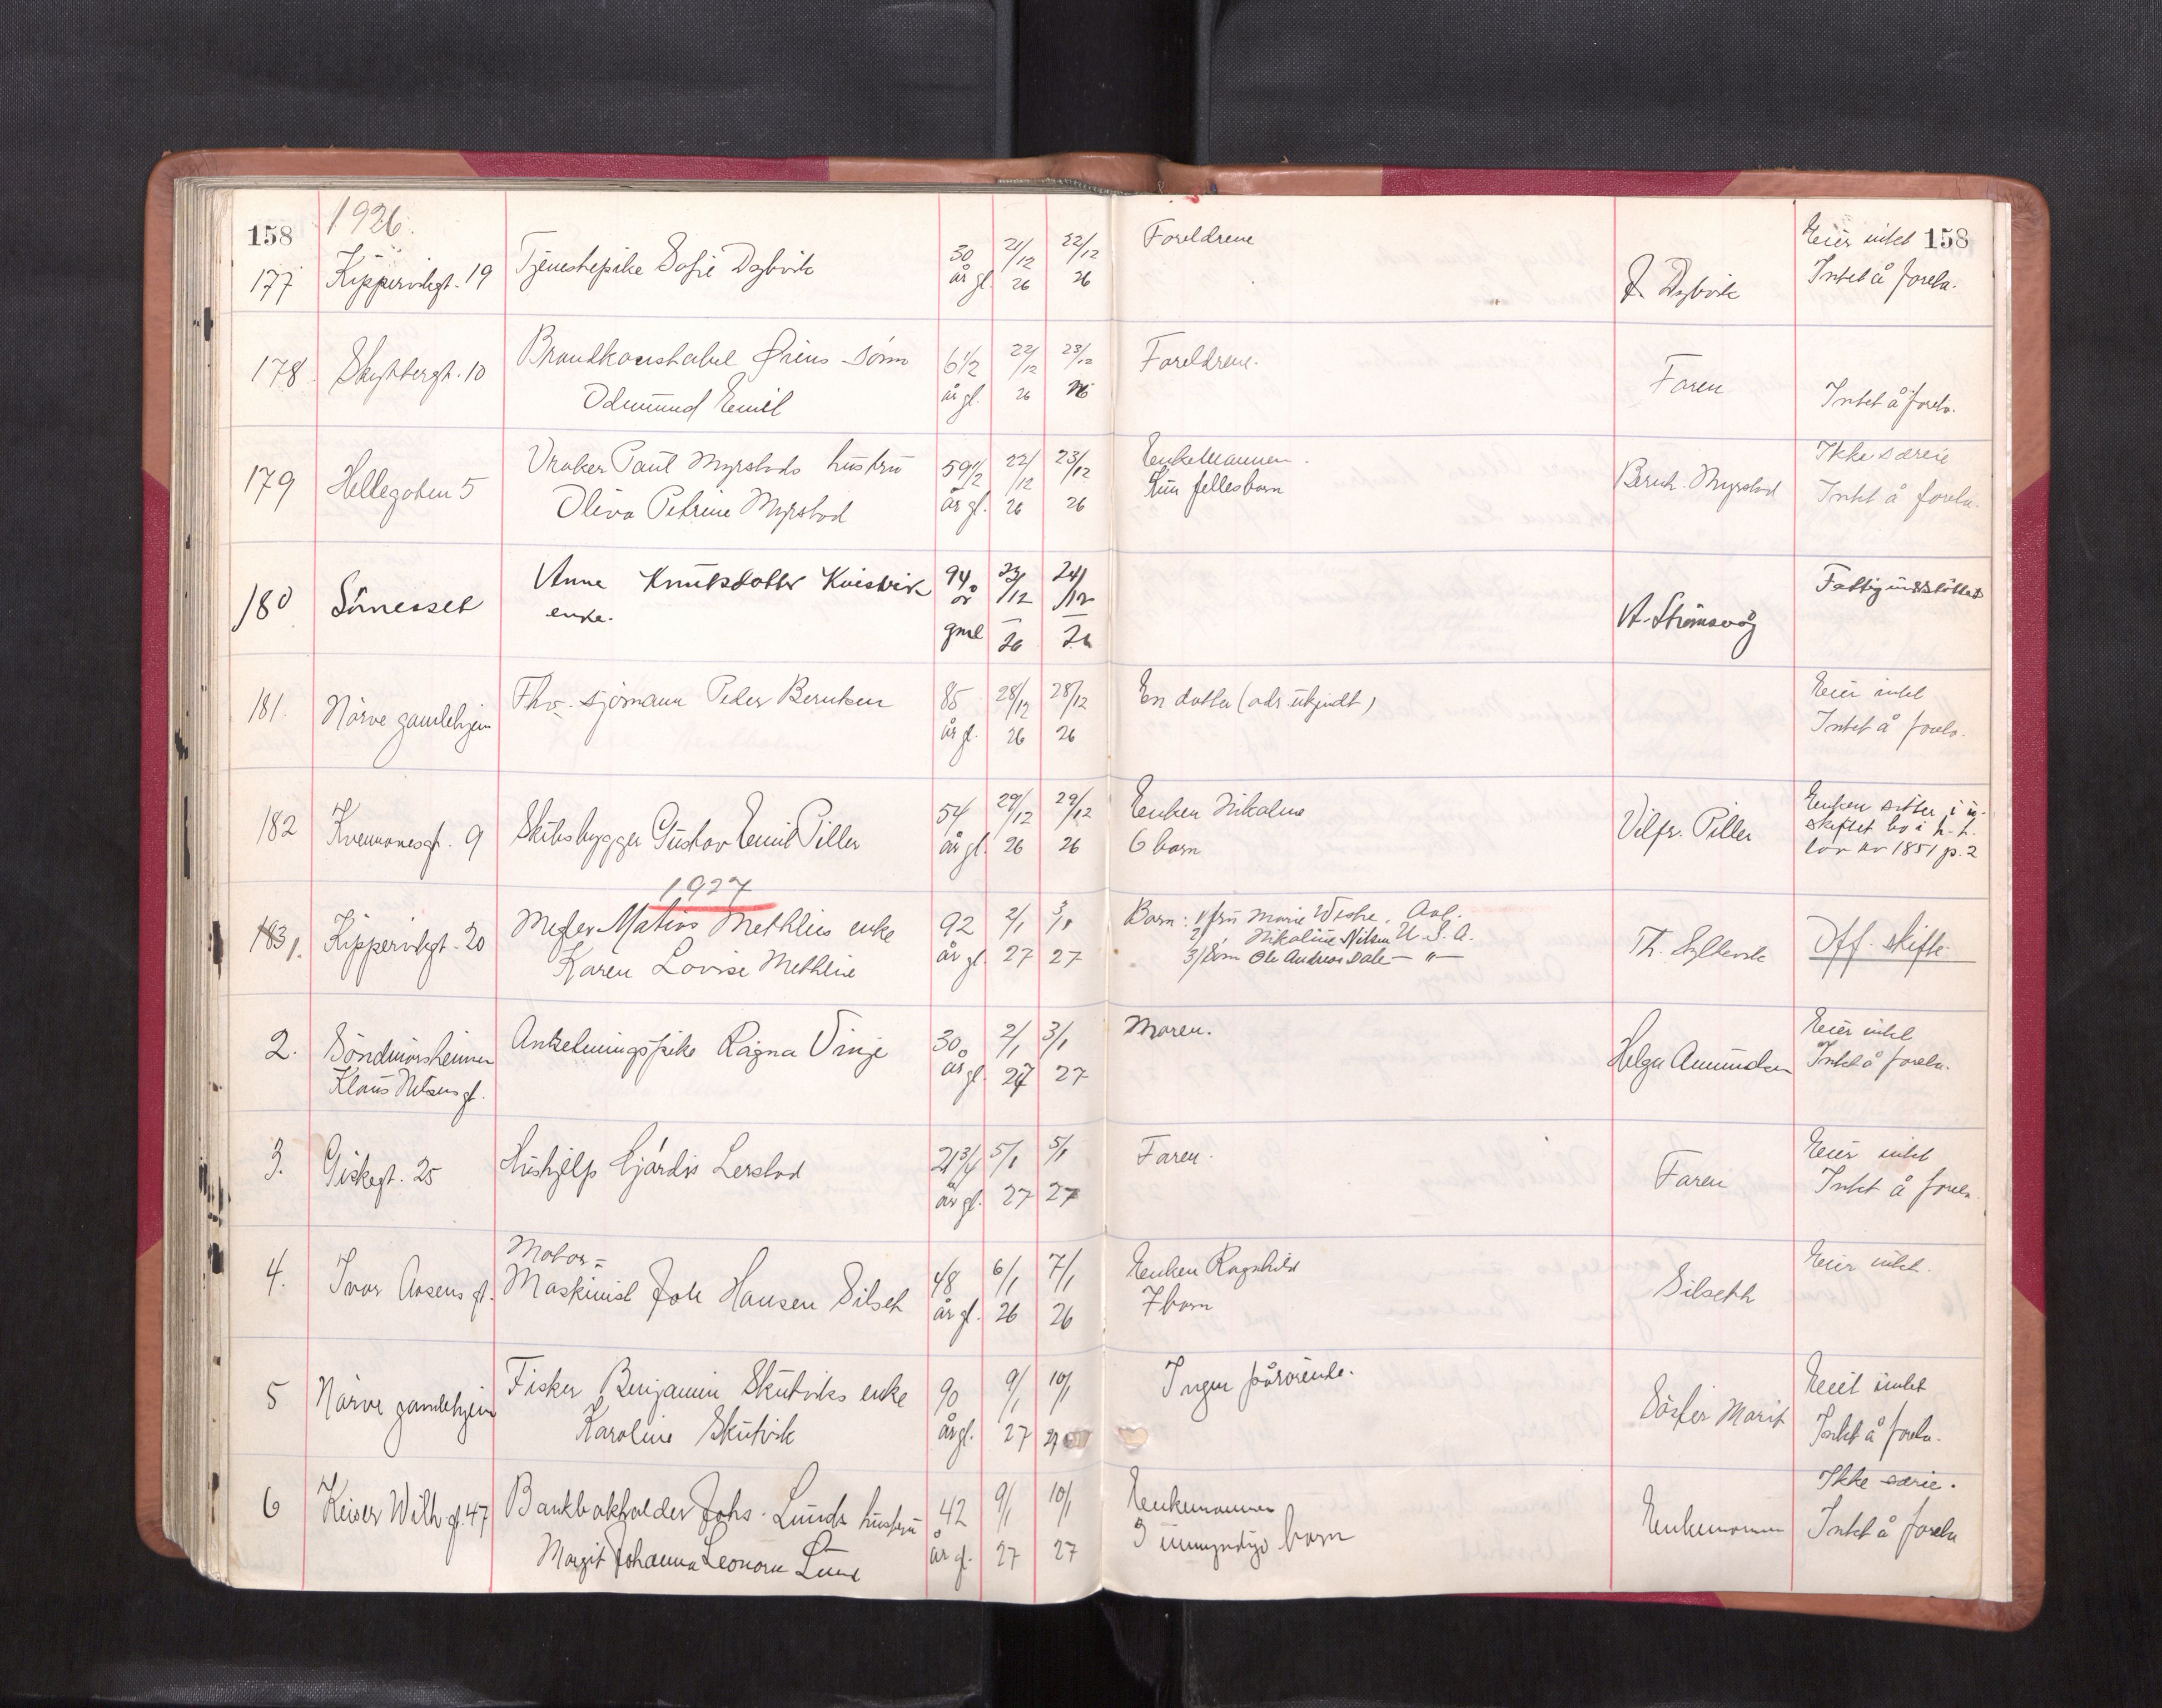 158
1926.
177 Kippervikgt. 19 Tjenestepike Sofie Dybvik 30 år gl. 21/12 26 22/12 26 Foreldrene Dybvik Eier intet Intet å forela. 158
178 10 Brandkonstabel sönn
Odmund Emil 6 1/2 år gl. 22/12 26 23/12 26 Foreldrene. Faren Intet å forela.
179 Hellegaten 5 Vraker Paul Myrstads hustru
Oliva Petrine Myrstad 59 1/2 år gl. 22/12 26 23/12 26 Enkemannen.
Kun fellesbarn Bernh. Myrstad Ikke særeie
Intet å forela.
180 Sörnesset Anne Knutsdatter Kvistvik
enke. 94 år gml 23/12 26 24/12 26 A. Strömsvåg Fattigunderstöttet
181. Nörve gamlehjem Fhv. sjömann Peder Berntsen 85 år gl. 28/12 26 28/12 26 En datter (adr ukjendt) Eier intet
Intet å forela.
182 Kvennanesgt. 9 Skibsbygger Gustav Emil Piller 54 år gl. 29/12 26 29/12 26 Enken Nikoline
6 barn Vilfr. Piller Enken sitter i u-
skiftet bo i h. t.
lov av 1851 p. 2
1927
183 1. Kippervikgt. 20 Megler Matias Methlies enke
Karen Lovise Methlie 92 år gl. 2/1 27 3/1 27 Barn: 1/ fru Marie Aal.
2/ Nikoline Nilsen U.S.A.
3/ Sönn Ole Andreas Dale — " — Th. Off. skifte
2. Söndmörsheimen
Klaus Nilsens gt. Anretningspike Ragna Vinje 30 år gl. 2/1 27 3/1 27 Moren. Helga Amundsen Eier intet
Intet å forela.
3. Giskegt. 25 Hushjelp Hjördis Lerstad 21 3/4 år gl. 5/1 27 5/1 27 Faren. Faren Eier intet
Intet å forela.
4. Ivar Aasens gt. Motor-
Maskinist Joh Hansen Silseth 48 år gl. 6/1 26 7/1 26 Enken Ragnhild
7 barn Silseth Eier intet.
5 Nörve gamlehjem Fisker Benjamin Skutviks enke
Karoline Skutvik 90 år gl. 9/1 27 10/1 27 Ingen pårörende. Söster Marit Eiet intet
Intet å forela.
6 Keiser Wilh. gt. 47 Bankbokholder Johs. Lunds hustru
Margit Johanna Leonora Lund 42 år gl. 9/1 27 10/1 27 Enkemannen
3 umyndige barn Enkemannen Ikke særeie.
Intet å forela